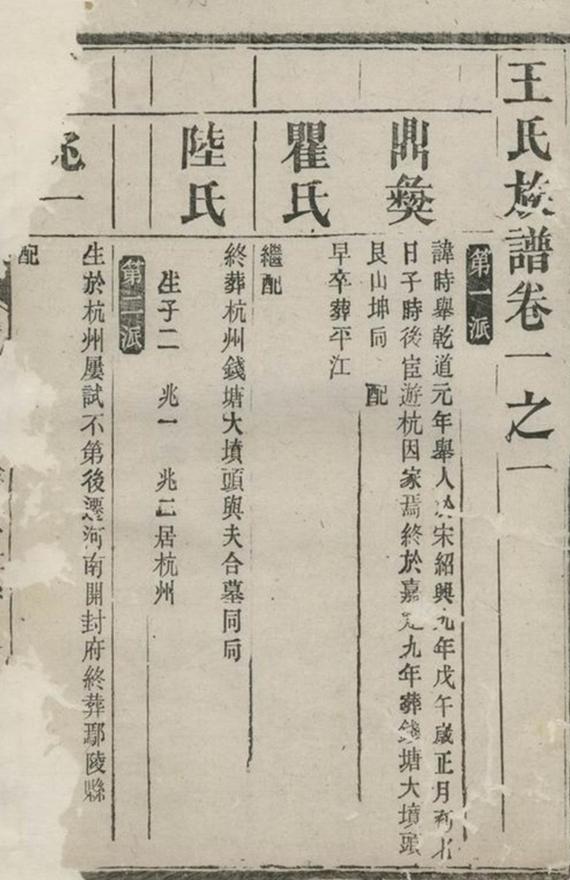 王氏族譜卷一之一
第一派
鼎彝
諱時舉乾道元年舉人 宋紹興九年戊午歲正月初
日子時後宦遊杭因家焉終於嘉定九年葬錢塘大墳頭
艮山坤向 配
瞿氏
早卒葬平江
繼配
陸氏
終葬杭州錢塘大墳頭與夫合墓同向
生子二 兆一 兆二居杭州
第二派
兆一
生於杭州屢試不第後遷河南開封府終葬鄢陵縣
配